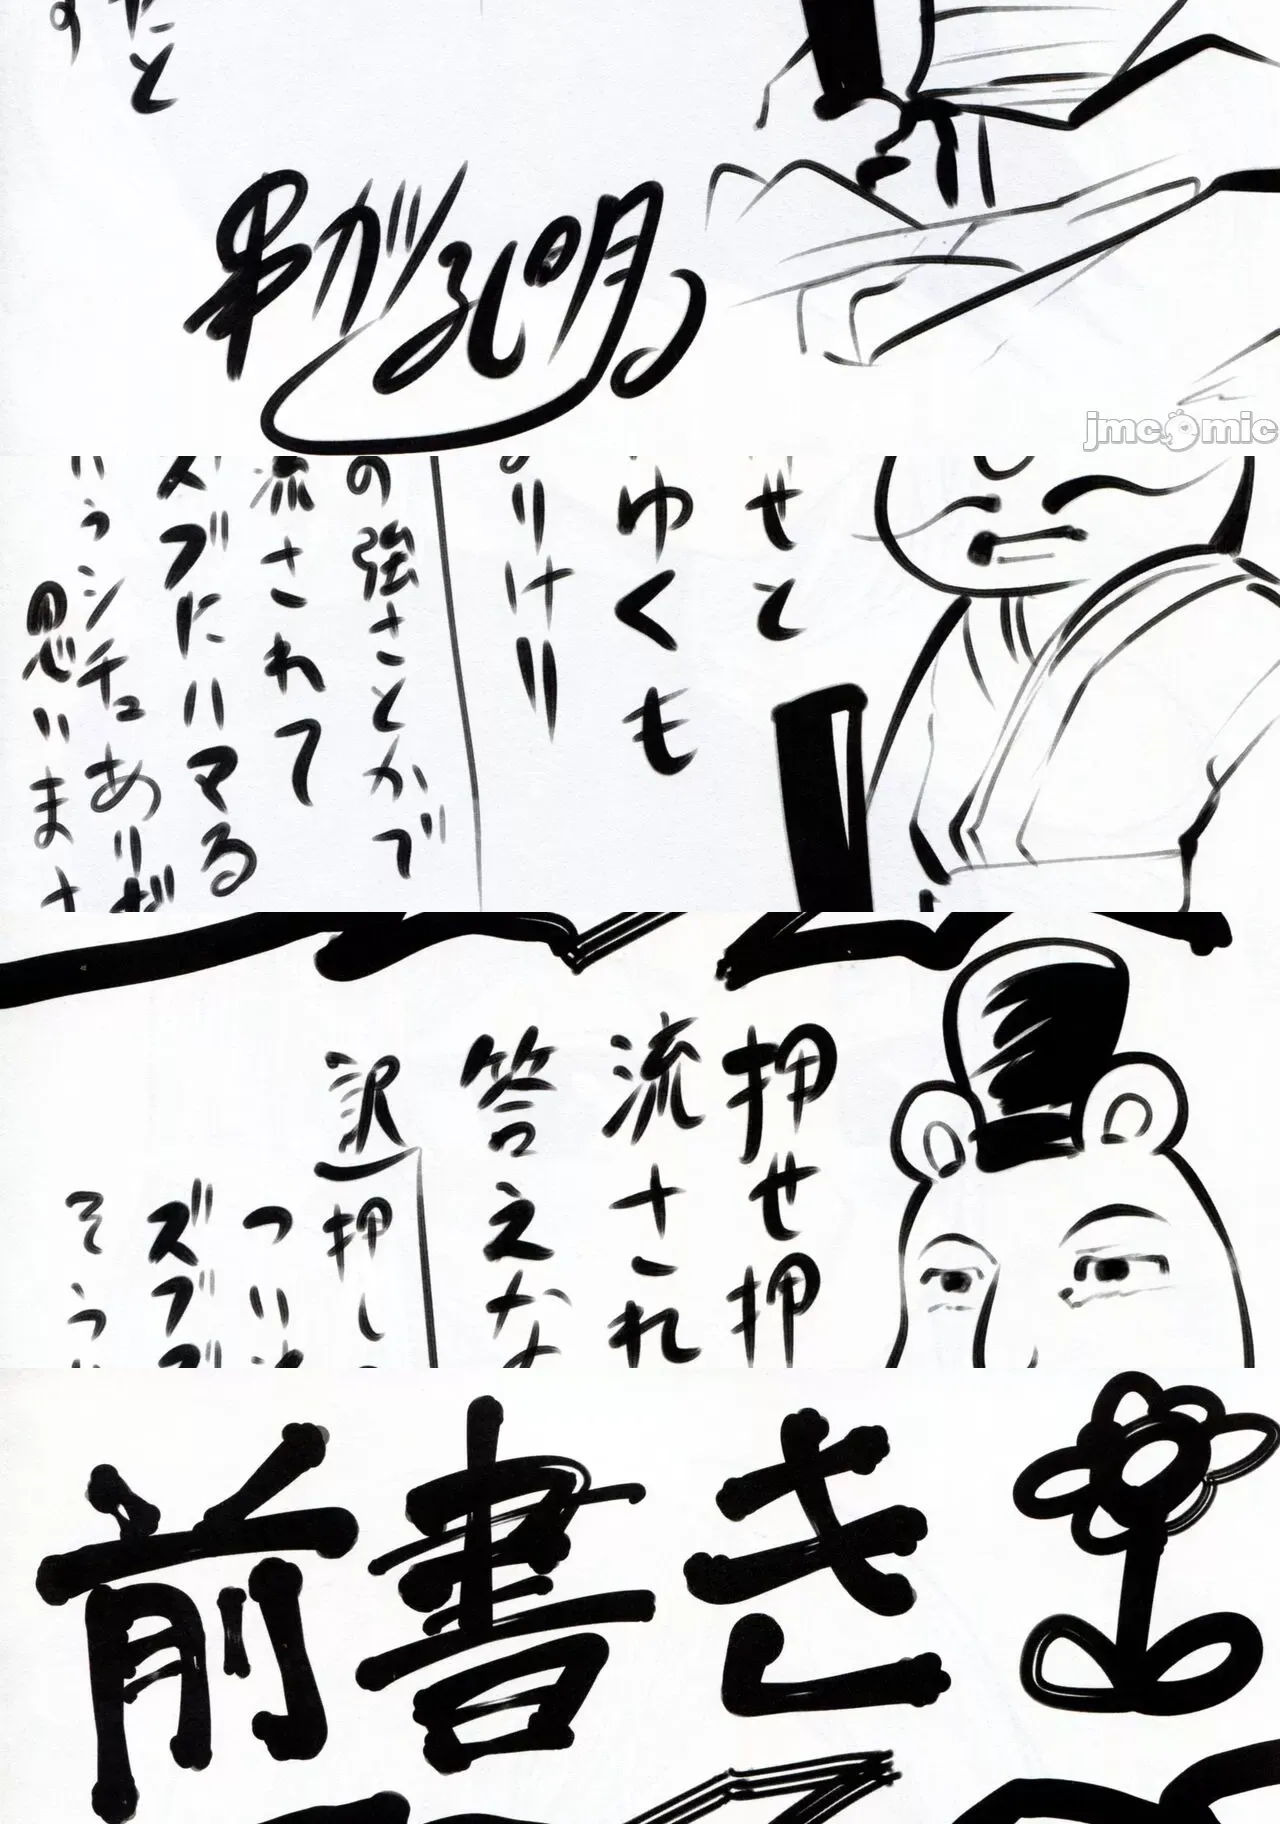 たと
す
孔明
jmcomic
せと
ゆくも
りけり
の強さとかで
流されて
ズブにハマる
いうシチュありだ
思いま
押せ押
流され
答えな
訳 押し
つい
ズブズブ
そう
前書き